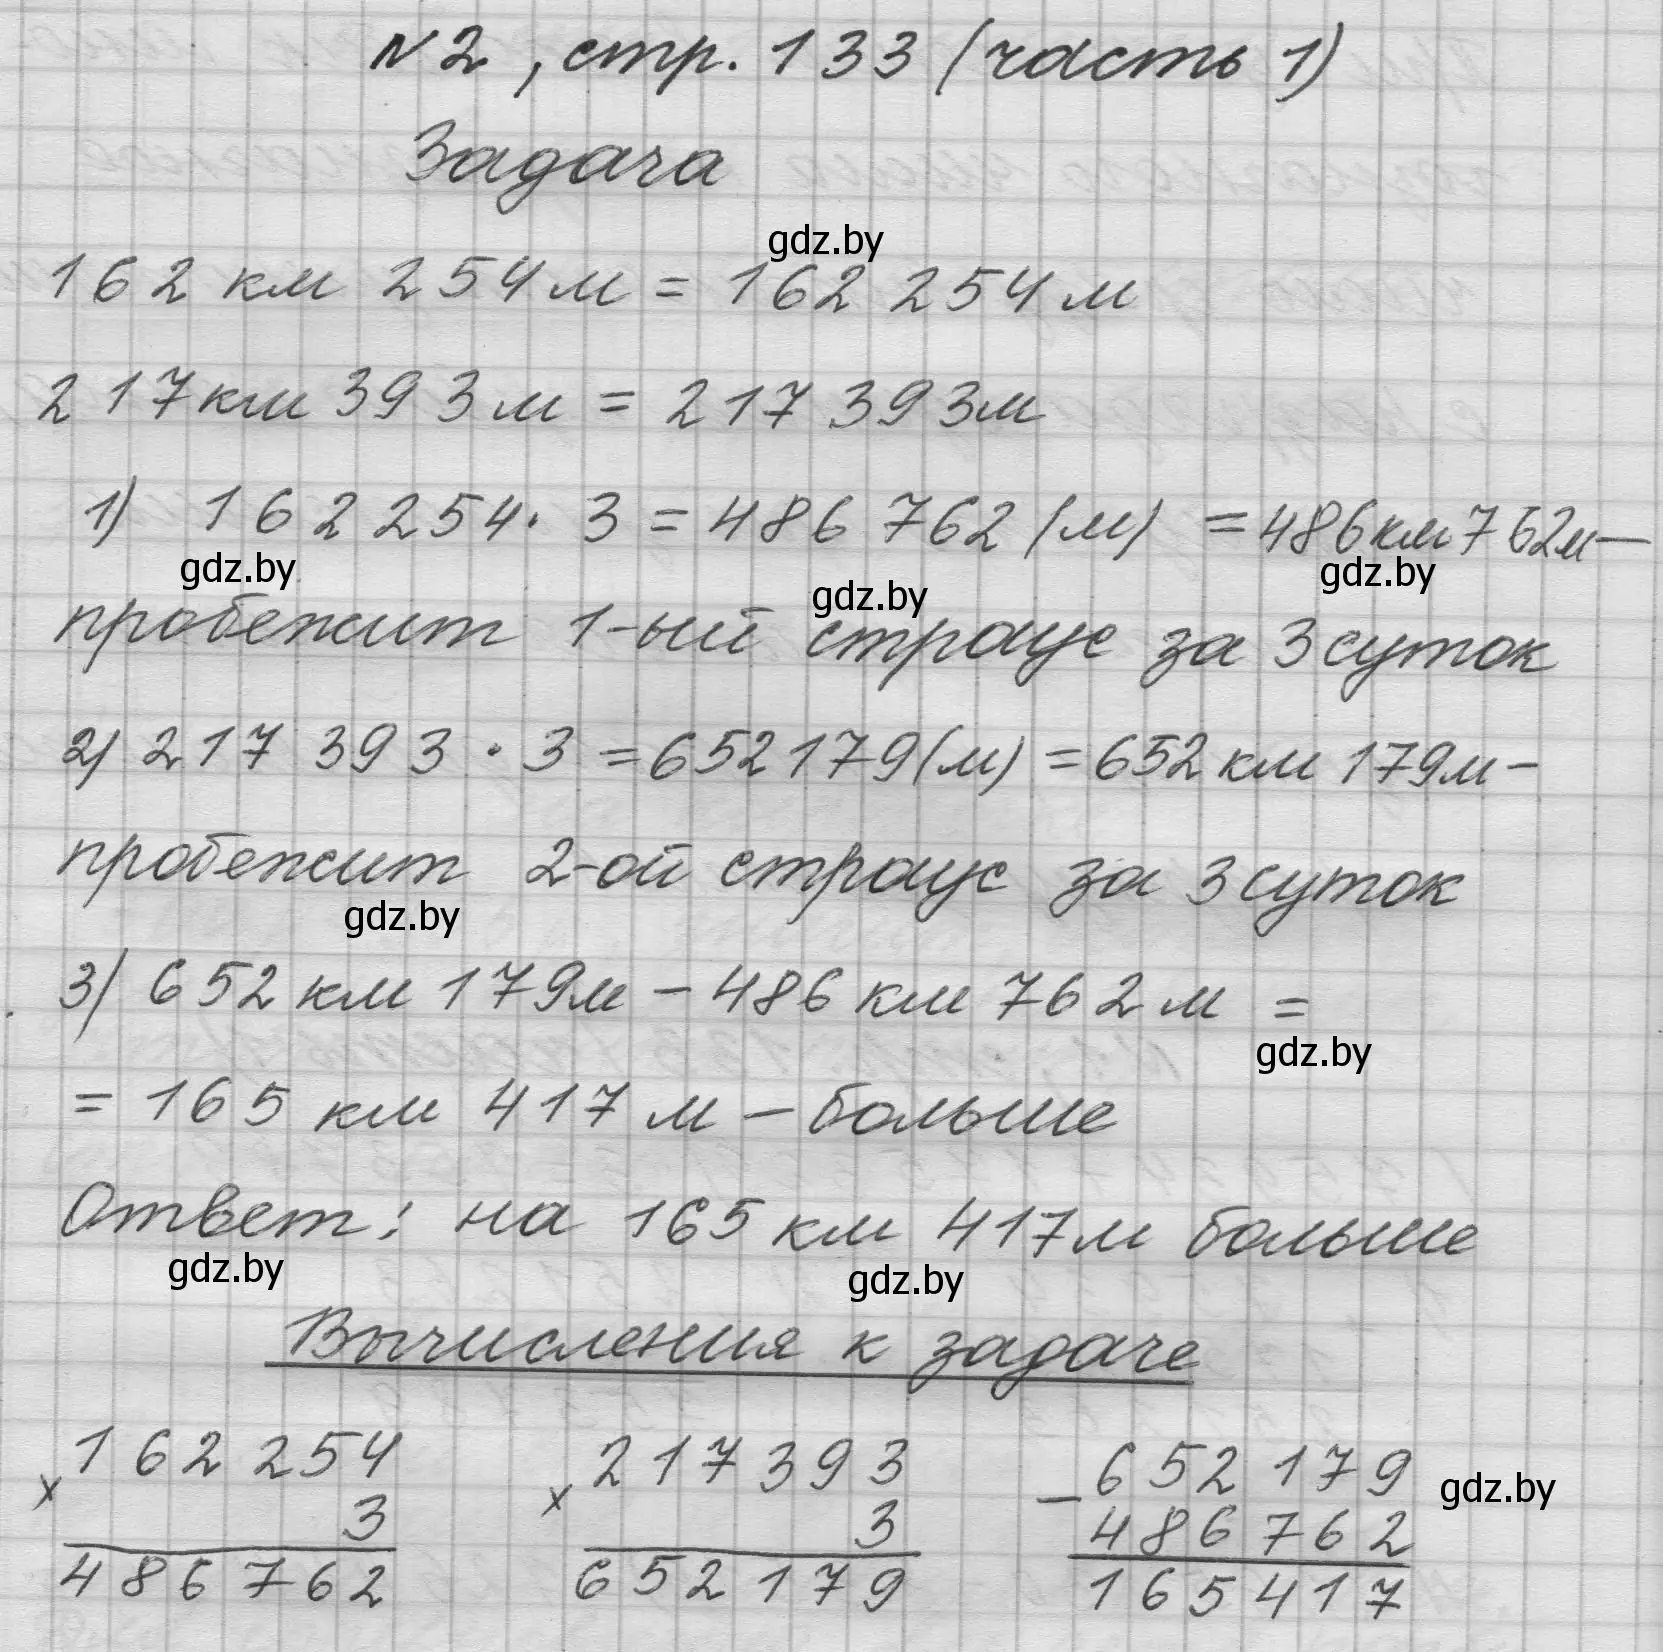 №2, стр. 133 (часть 1)
Задача
gdz.by
162 км 254 м = 162 254 м
217 км 393 м = 217 393 м
1) 162 254 · 3 = 486 762 (м) = 486 км 762 м —
gdz.by gdz.by gdz.by
пробежит 1-ый страус за 3 суток
2) 217 393 · 3 = 652 179 (м) = 652 км 179 м —
пробежит 2-ой страус за 3 суток
gdz.by
3) 652 км 179 м — 486 км 762 м =
gdz.by
= 165 км 417 м — больше
Ответ: на 165 км 417 м больше
gdz.by gdz.by
Вычисления к задаче
× 162 254
3
486 762
× 217 393
3
652 179
— 652 179
486 762
165 417
gdz.by